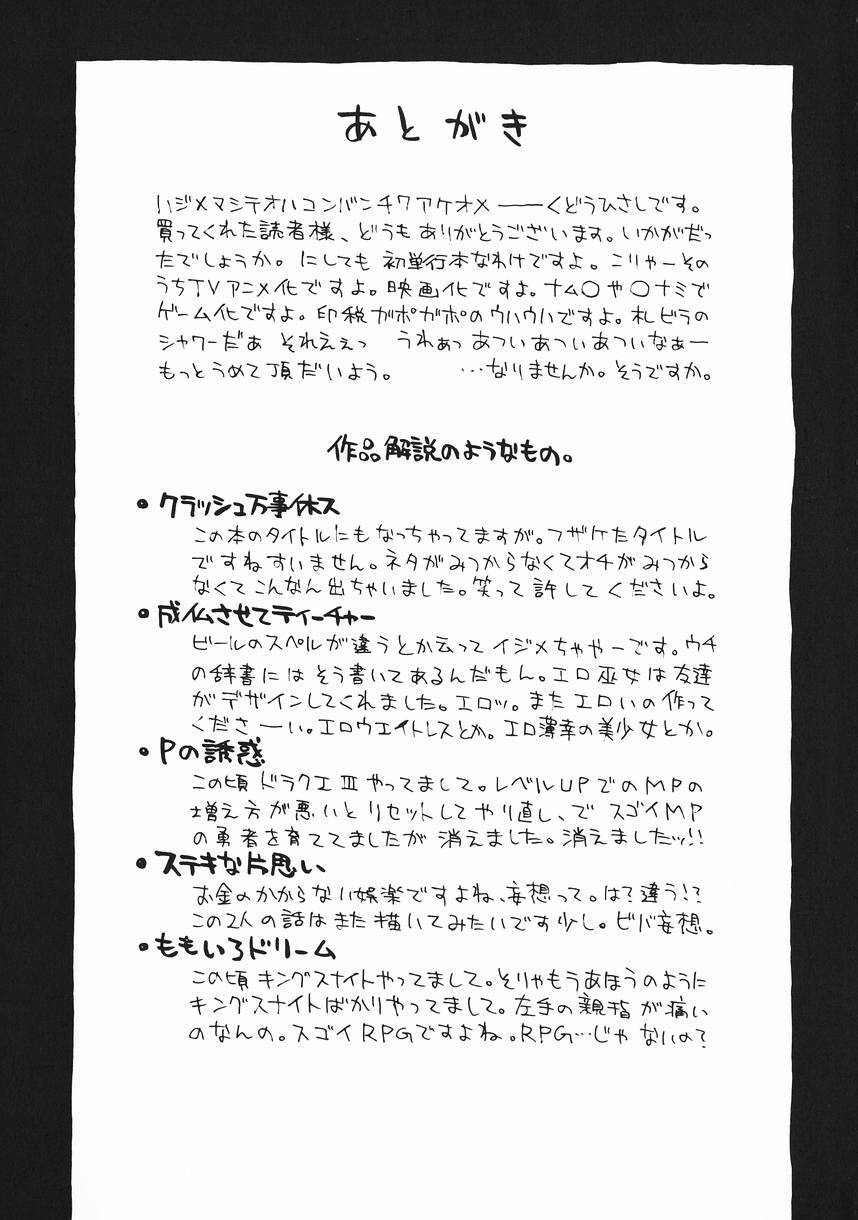 あとがき
ハジメマシテオハコンバンチワアケオメ――くどうひさしです。
買ってくれた読者様、どうもありがとうございます。いかがだっ
たでしょうか。にしても初単行本なわけですよ。こりゃーその
うちTVアニメ化ですよ。映画化ですよ。ナム〇や〇ナミで
ゲーム化ですよ。印税ガポガポのウハウハですよ。札ビラの
シャワーだぁ それえぇっ うわぁっ あつい あつい あついなぁー
もっとうめて頂だいよう。 …なりませんか。そうですか。
作品解説のようなもの。
・クラッシュ万事休ス
この本のタイトルにもなっちゃってますが。フザケたタイトル
ですねすいません。ネタがみつからなくてオチがみつから
なくてこんなん出ちゃいました。笑って許してくださいよ。
・成仏させてティーチャー
ビールのスペルが違うとか云ってイジメちゃやーです。ウチ
の辞書にはそう書いてあるんだもん。エロ巫女は友達
がデザインしてくれました。エロッ。またエロいの作って
くださーい。エロウエイトレスとか。エロ薄幸の美少女とか。
・Pの誘惑
この頃ドラクエIIIやってまして。レベルUPでのMPの
増え方が悪いとリセットしてやり直し、でスゴイMP
の勇者を育ててましたが消えました。消えましたッ!!
・ステキな片思い
お金のかからない娯楽ですよね、妄想って。は?違う!?
この2人の話はまた描いてみたいです少し。ビバ妄想。
・ももいろドリーム
この頃キングスナイトやってまして。そりゃもうあほうのように
キングスナイトばかりやってまして。左手の親指が痛い
のなんの。スゴイRPGですよね。RPG…じゃないの?